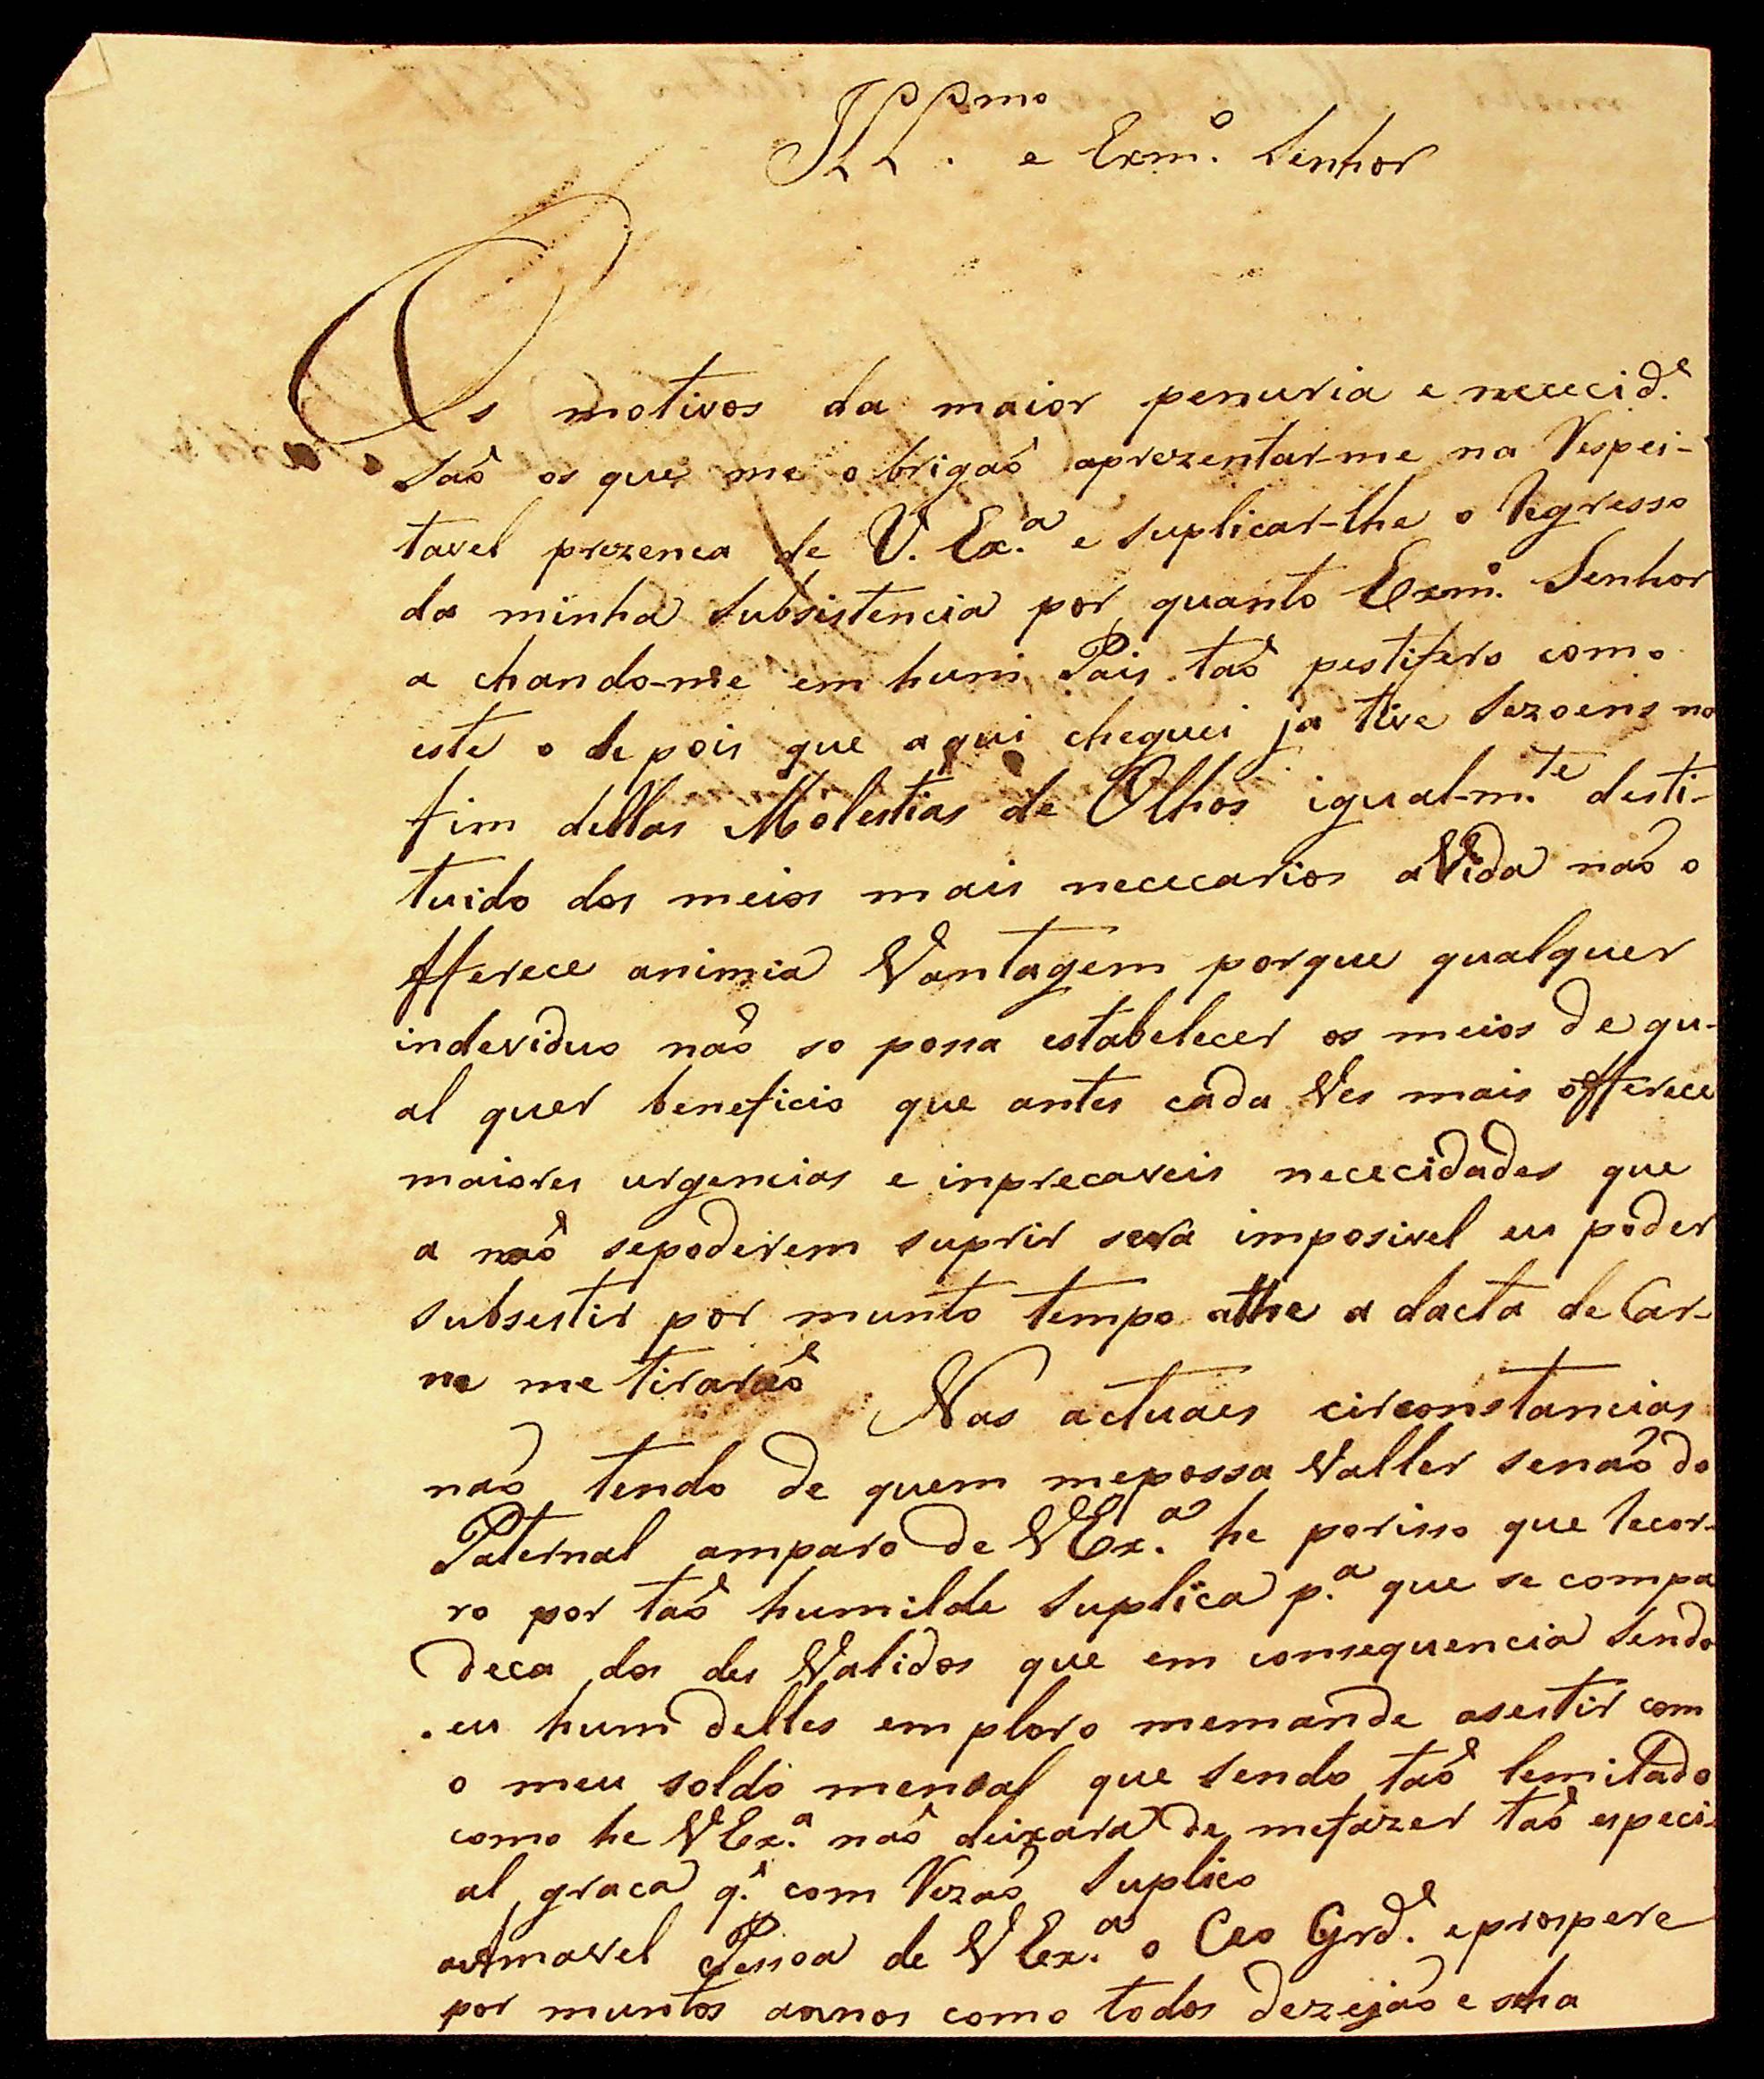 Ill.mo e Exm.o Senhor
Os motivos da maior penuria e nececid.e
Saõ os que me obrigaõ aprezentar-me na Respei-
tavel prezenca de V. Ex.a e suplicar-lhe o Regresso
da minha subsistencia por quanto Exm.o Senhor
a chando-me em hum Pais taõ pestifero como
este o de pois que aqui cheguei ja tive Sezoens no
fim dellas Molestias de Olhos igual-m.te desti-
tuido dos meios mais nececarios a Vida naõ o
fferece a nimia Vantagem porque qualquer
individuo naõ so possa estabelecer os meios de qu-
al quer beneficio que antes cada Ves mais offerece
maiores urgencias e inprecaveis nececidades que
a naõ sepoderem suprir sera imposivel eu poder
subsestir por munto tempo athe a dacta de Car-
ne me tiraraõ Nas actuaes circonstancias
naõ tendo de quem mepossa Valler senaõ do
Paternal amparo de VEx.a he porisso que Recor-
ro por taõ humilde Suplica p.a que se compa
deca dos des Validos que em consequencia Sendo
eu hum delles em ploro memande asestir com
o meu soldo mensal que sendo taõ lemitado
como he VEx.a naõ deixara de mefazer taõ especi-
al graca q.e com Rezaõ Suplico
aAmavel Pessoa de VEx.a o Ceo Grd.e eprospere
por muntos annos como todos dezejaõ e